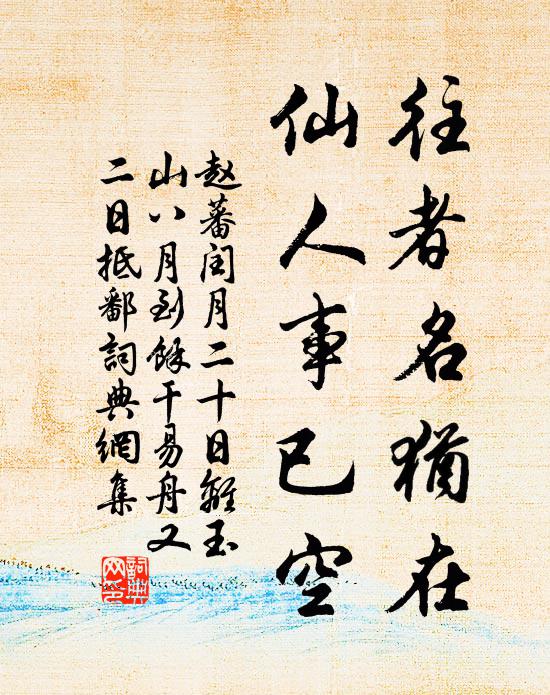 往者名犹在
仙人事已空
赵蕃闰月二十日离玉
山八月到馀干易舟又
二日抵鄱词典网集
词典网印